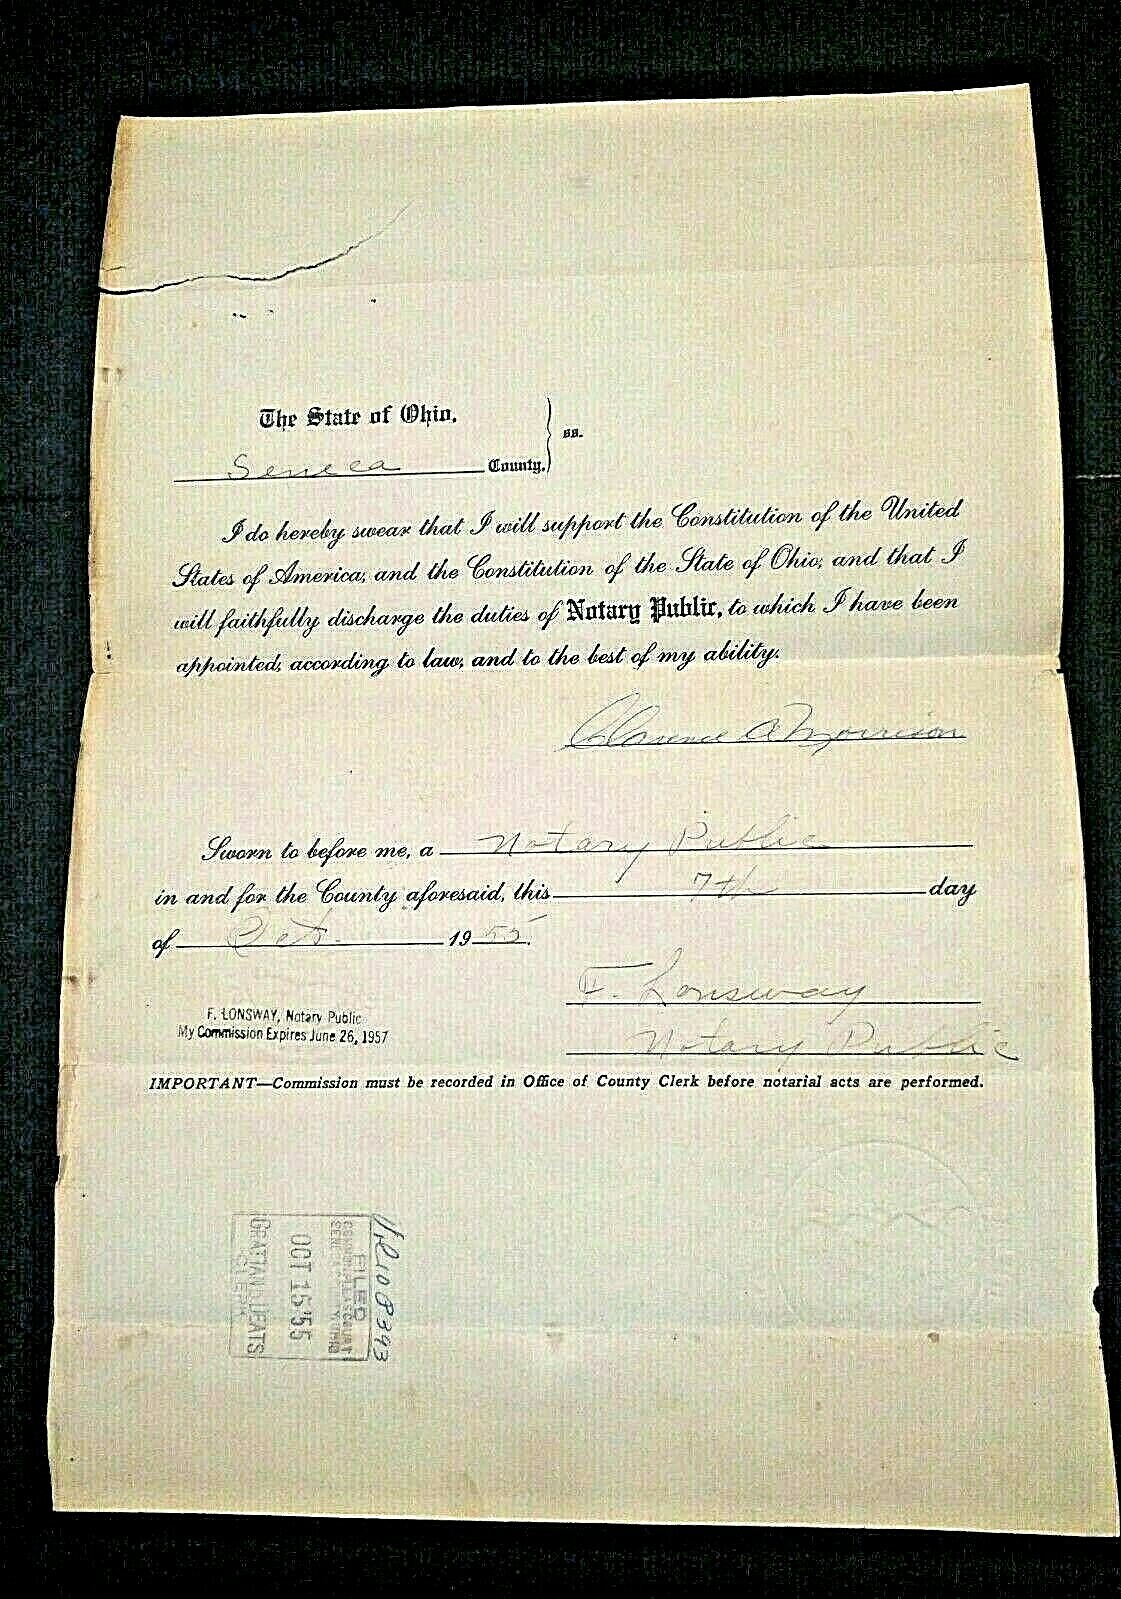 The State of Ohio,
Seneca County,
ss.
I do hereby swear that I will support the Constitution of the United
States of America, and the Constitution of the State of Ohio, and that I
will faithfully discharge the duties of Notary Public, to which I have been
appointed, according to law, and to the best of my ability.
Clarence A Morrison
Sworn to before me, a Notary Public
in and for the County aforesaid, this 7th day
of Oct. 1955.
F. Lonsway
Notary Public
F. LONSWAY, Notary Public
My Commission Expires June 26, 1957
IMPORTANT—Commission must be recorded in Office of County Clerk before notarial acts are performed.
FILED
OCT 15 '55
CLERK